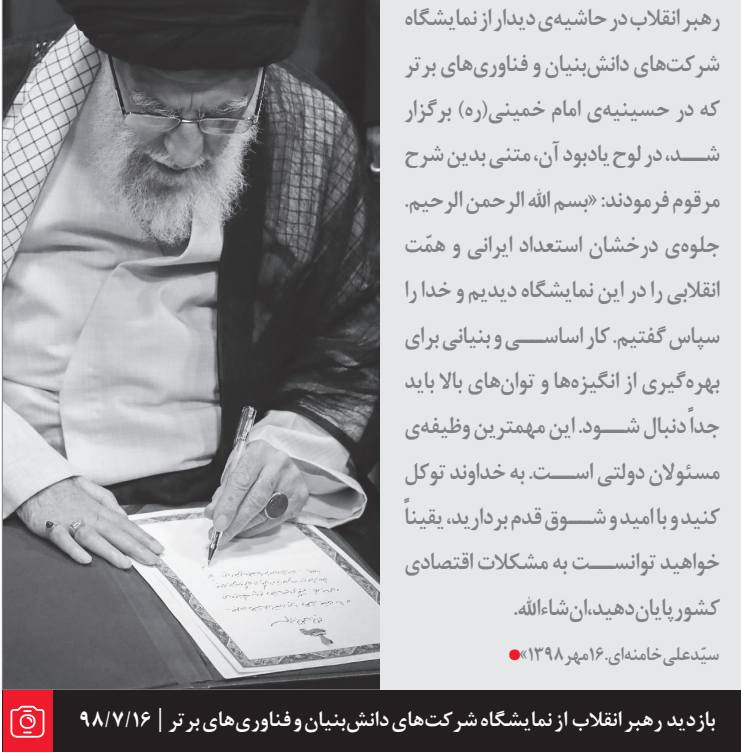 رهبر انقلاب در حاشیه‌ی دیدار از نمایشگاه
شرکت‌های دانش‌بنیان و فناوری‌های برتر
که در حسینیه‌ی امام خمینی(ره) برگزار
شد، در لوح یادبود آن، متنی بدین شرح
مرقوم فرمودند: «بسم الله الرحمن الرحیم.
جلوه‌ی درخشان استعداد ایرانی و همّت
انقلابی را در این نمایشگاه دیدیم و خدا را
سپاس گفتیم. کار اساسی و بنیانی برای
بهره‌گیری از انگیزه‌ها و توان‌های بالا باید
جداً دنبال شود. این مهمترین وظیفه‌ی
مسئولان دولتی است. به خداوند توکل
کنید و با امید و شوق قدم بردارید، یقیناً
خواهید توانست به مشکلات اقتصادی
کشور پایان دهید، ان‌شاءالله.
سیّدعلی خامنه‌ای. ۱۶ مهر ۱۳۹۸»
بازدید رهبر انقلاب از نمایشگاه شرکت‌های دانش‌بنیان و فناوری‌های برتر | ۹۸/۷/۱۶